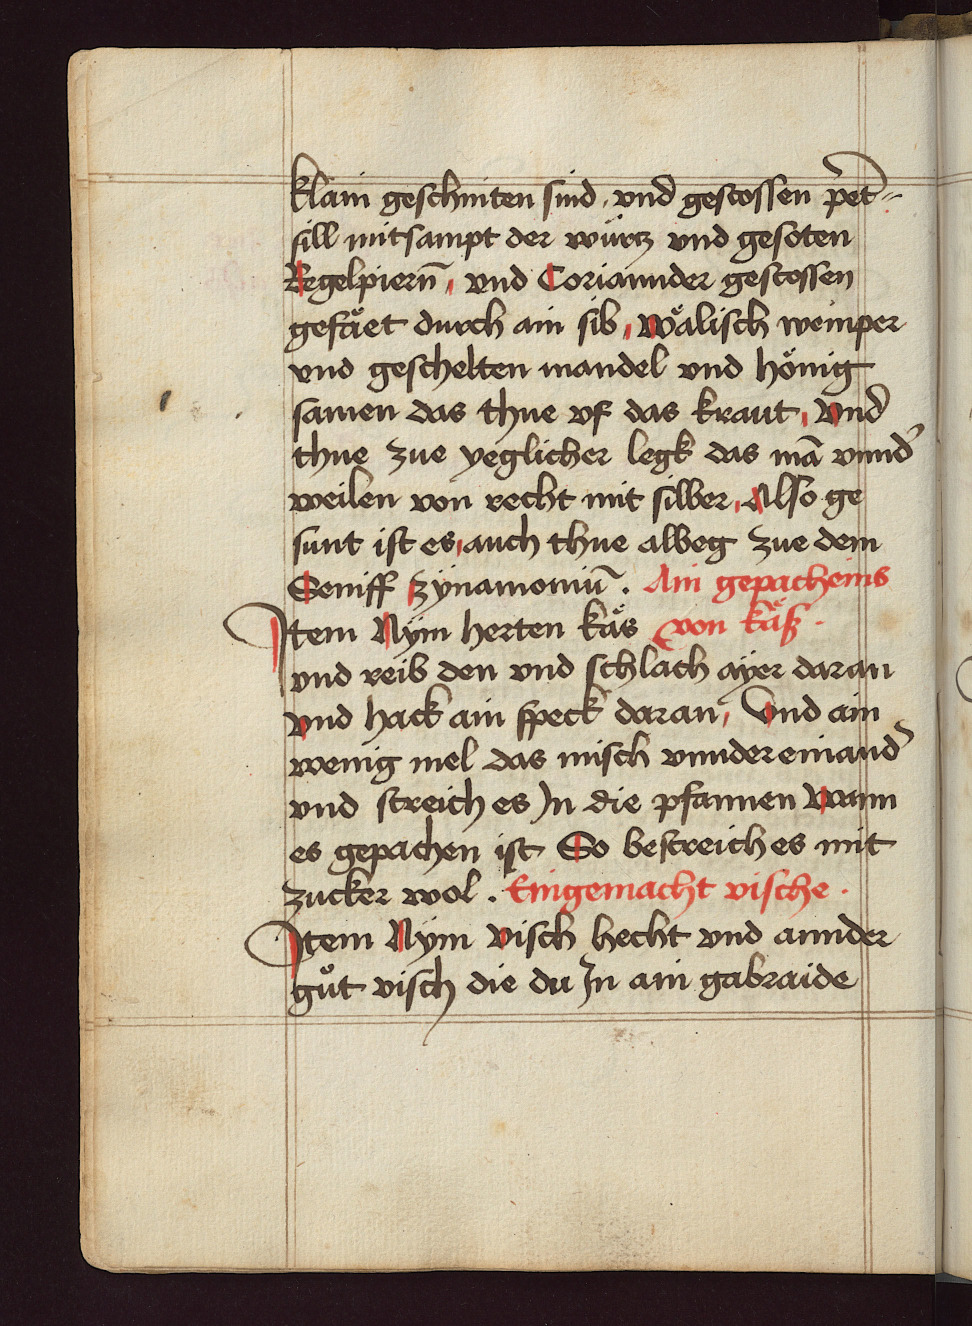 klain geschniten sind, und gestossen pet=
sill mitsampt der würtz und gesoten
Regelpiern̄, und Coriannder gestossen
gesäet durch ain sib, wälisch weinper
vnd geschelten mandel vnd hönig
samen das thue vf das kraut, Vnd
thue zue yeglicher legk das mā vnnd
weilen von recht mit silber, Also ge
sunt ist es, auch thue albeg zue dem
Seniff zÿnamomiū. Ain gepacheins
Item Nÿm herten käs von käß.
vnd reib den vnd schlach aÿer daran
vnd hack ain speck daran, Vnd ain
wenig mel das misch vnndereinand
vnd streich es In die pfannen Wann
es gepachen ist So bestreich es mit
zucker wol. Eingemacht vische.
Item Nÿm visch hecht vnd annder
gůt visch die du In ain gabraide